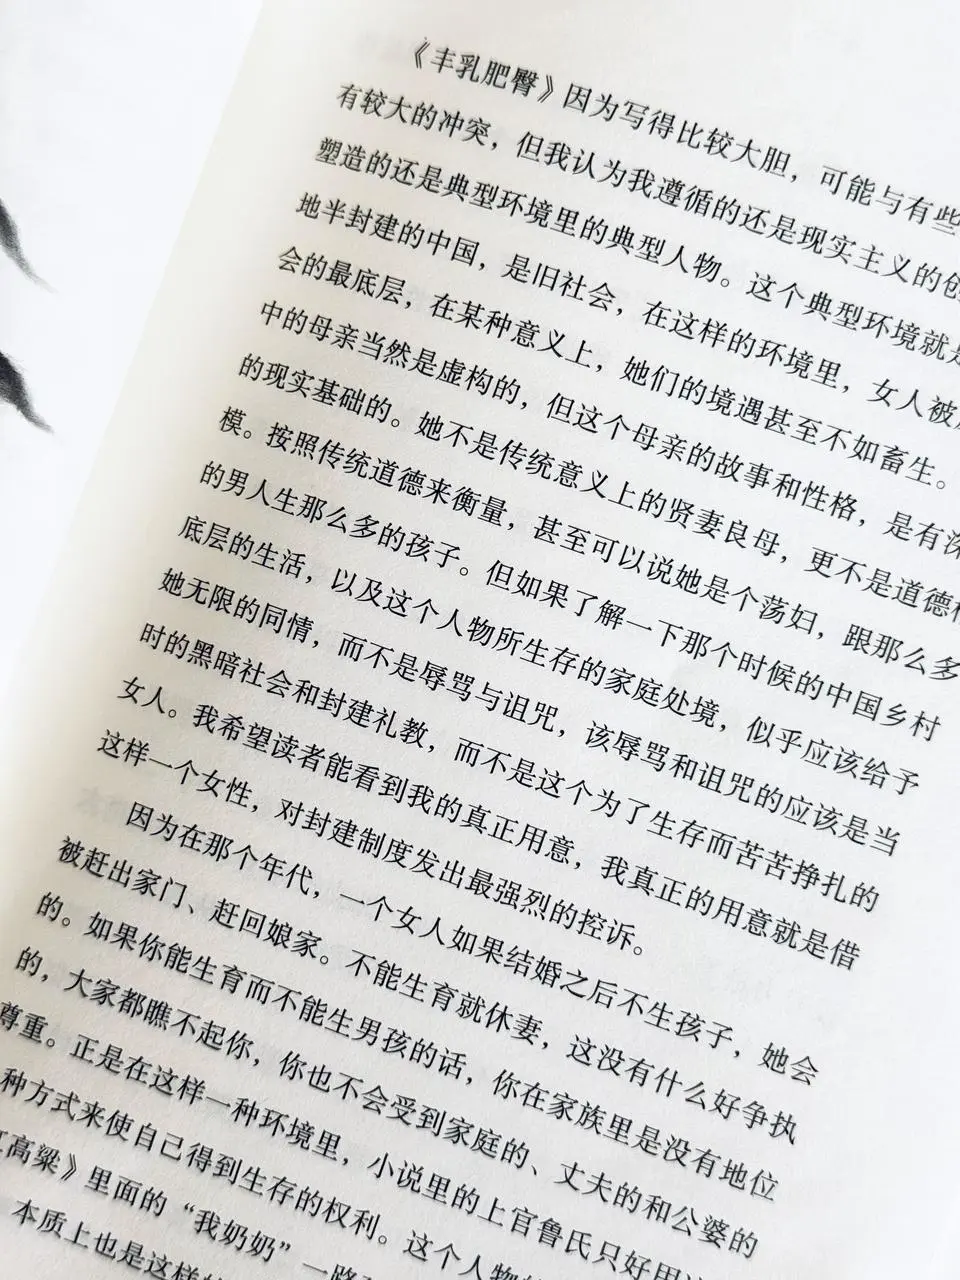 《丰乳肥臀》因为写得比较大胆，可能与有些
有较大的冲突，但我认为我遵循的还是现实主义的创
塑造的还是典型环境里的典型人物。这个典型环境就是
地半封建的中国，是旧社会，在这样的环境里，女人被
会的最底层，在某种意义上，她们的境遇甚至不如畜生。
中的母亲当然是虚构的，但这个母亲的故事和性格，是有深
的现实基础的。她不是传统意义上的贤妻良母，更不是道德
模。按照传统道德来衡量，甚至可以说她是个荡妇，跟那么多
的男人生那么多的孩子。但如果了解一下那个时候的中国乡村
底层的生活，以及这个人物所生存的家庭处境，似乎应该给予
她无限的同情，而不是辱骂与诅咒，该辱骂和诅咒的应该是当
时的黑暗社会和封建礼教，而不是这个为了生存而苦苦挣扎的
女人。我希望读者能看到我的真正用意，我真正的用意就是借
这样一个女性，对封建制度发出最强烈的控诉。
因为在那个年代，一个女人如果结婚之后不生孩子，她会
被赶出家门、赶回娘家。不能生育就休妻，这没有什么好争执
的。如果你能生育而不能生男孩的话，你在家族里是没有地位
的，大家都瞧不起你，你也不会受到家庭的、丈夫的和公婆的
尊重。正是在这样一种环境里，小说里的上官鲁氏只好用
种方式来使自己得到生存的权利。这个人物
高粱》里面的“我奶奶”一路
本质上也是这样